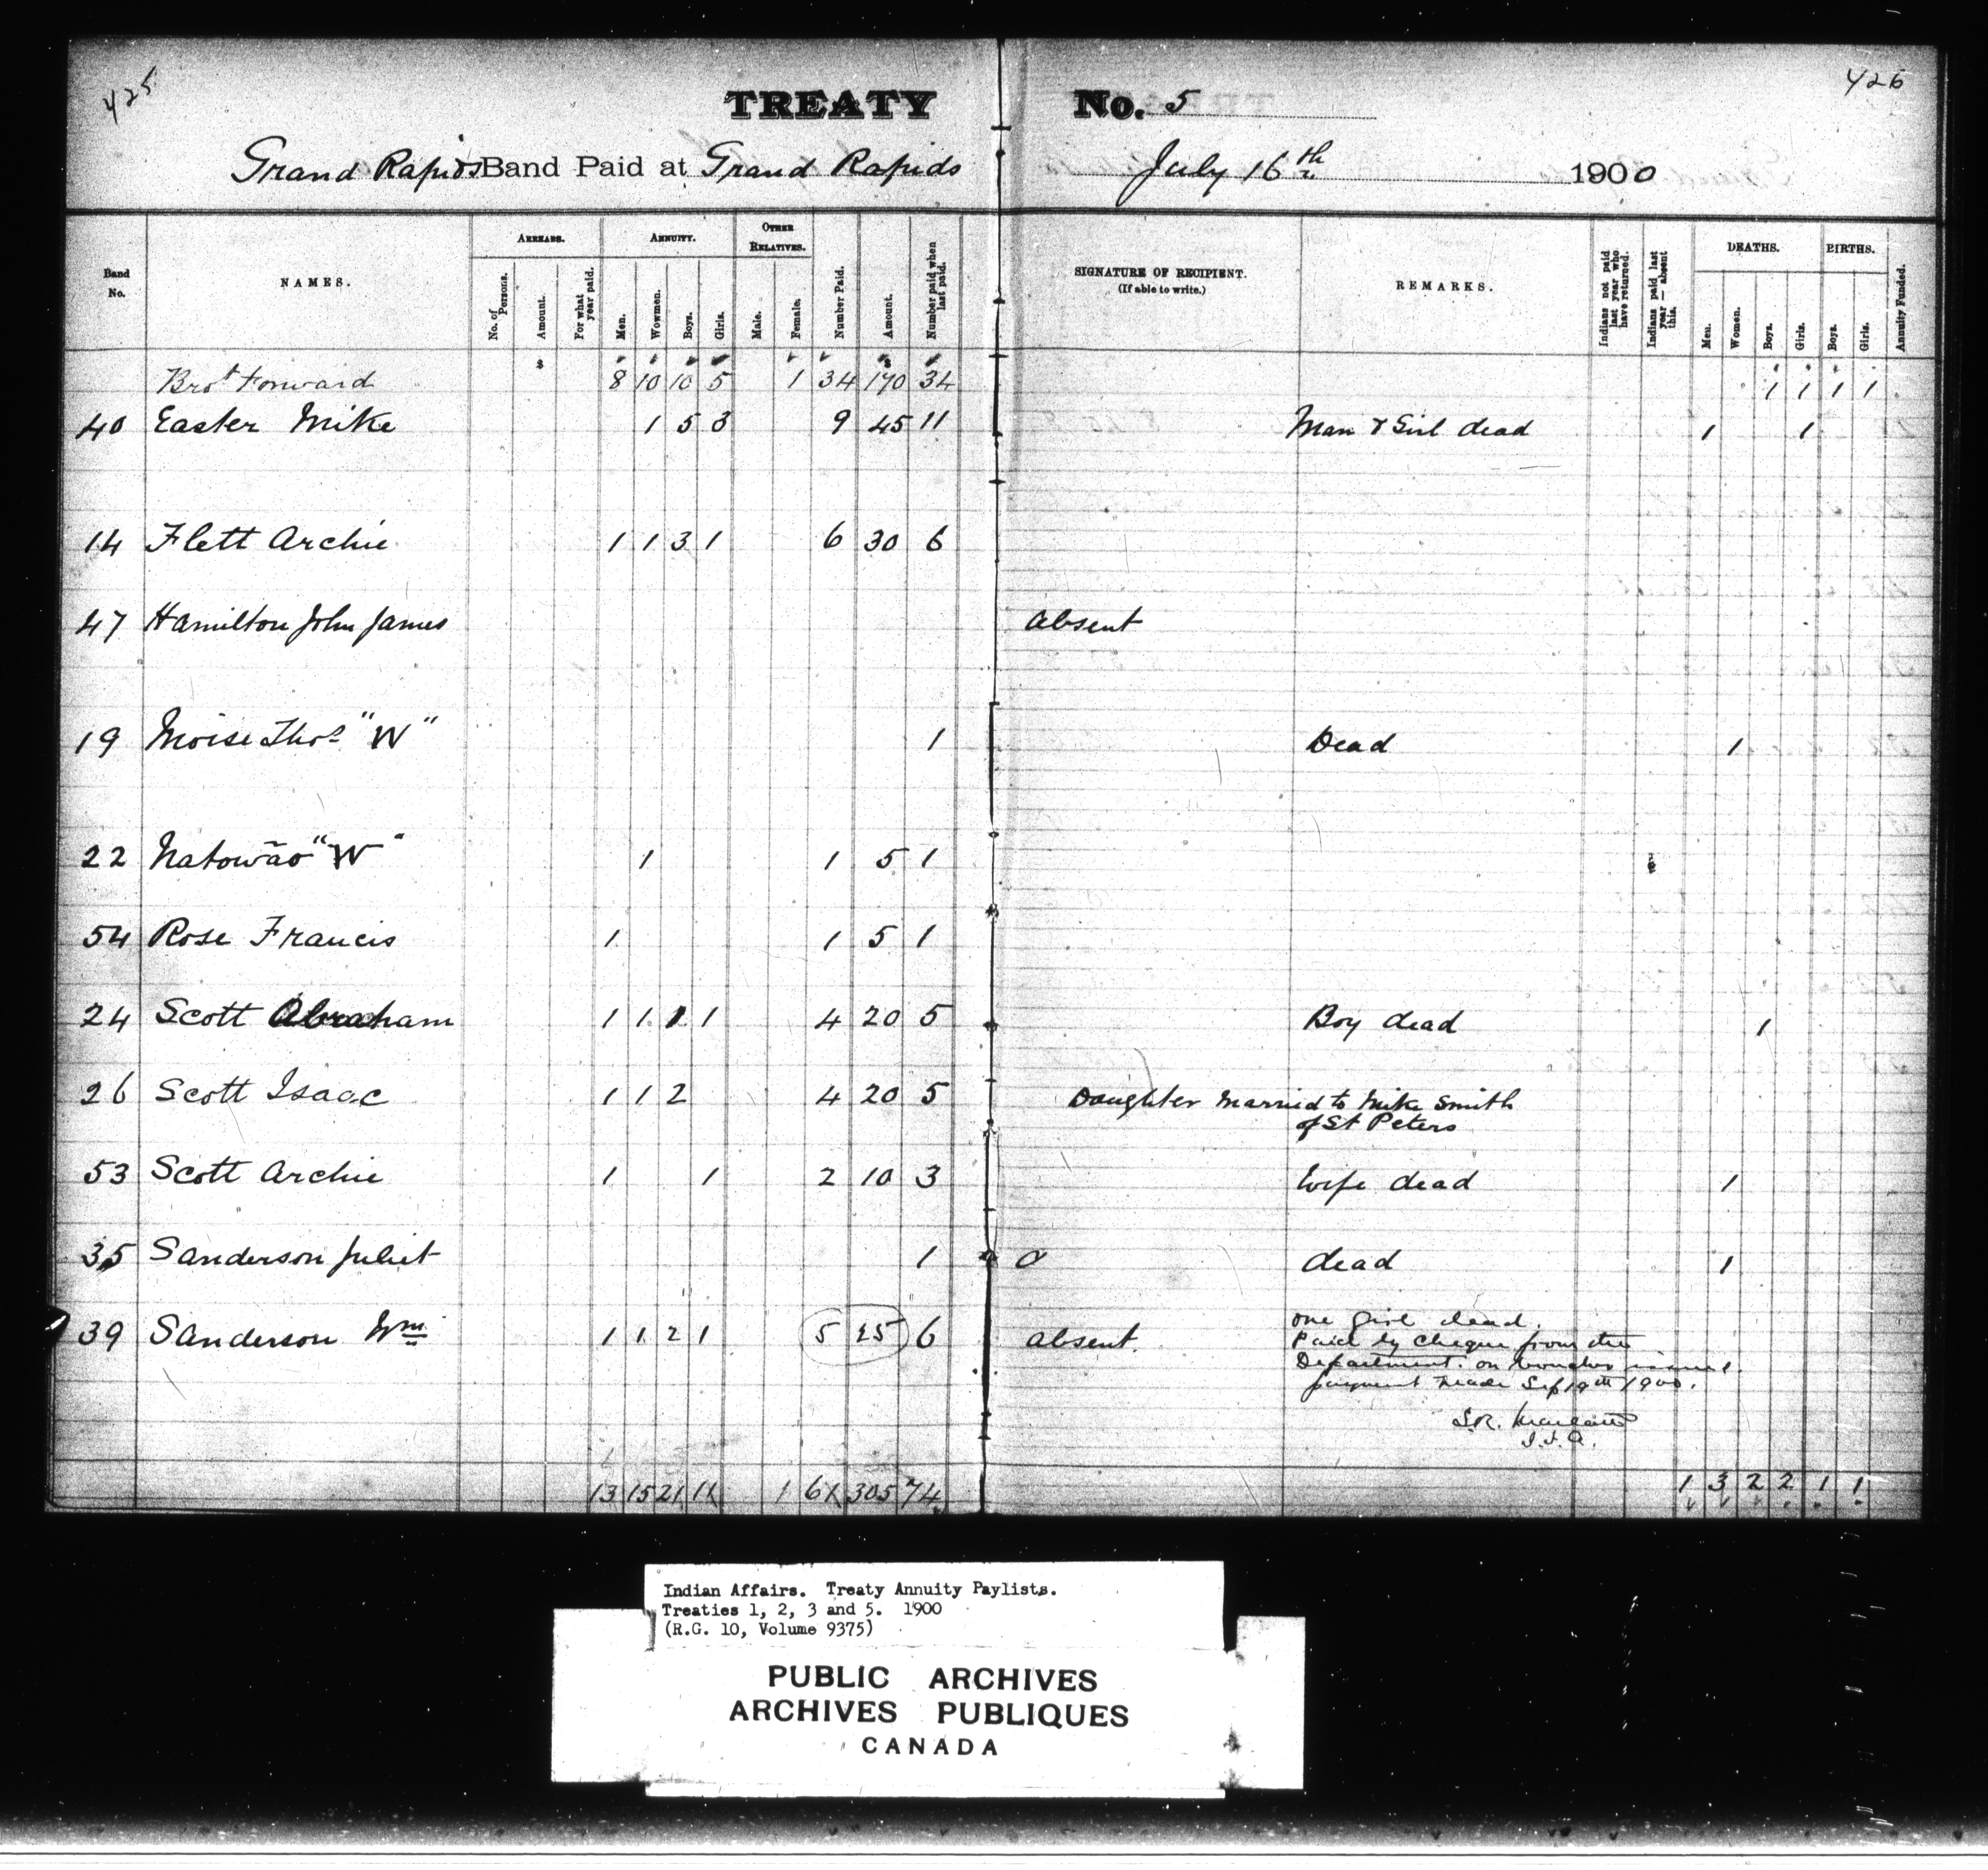 425
426
TREATY No. 5
Grand Rapids Band Paid at Grand Rapids July 16th 1900
Band No.
NAMES.
ARREARS.
No. of Persons.
Amount.
For what year paid.
ANNUITY.
Men.
Wowmen.
Boys.
Girls.
OTHER RELATIVES.
Male.
Female.
Number Paid.
Amount.
Number paid when last paid.
SIGNATURE OF RECIPIENT.
(If able to write.)
REMARKS.
Indians not paid last year who have returned.
Indians paid last year — absent this.
DEATHS.
Men.
Women.
Boys.
Girls.
BIRTHS.
Boys.
Girls.
Annuity Funded.
$ $
Brot Forward 8 10 10 5 1 34 170 34 1 1 1 1
40 Easter Mike 1 5 3 9 45 11 Man & Girl dead 1 1
14 Flett Archie 1 1 3 1 6 30 6
47 Hamilton John James absent
19 Moise Thos "W" 1 Dead 1
22 Natowāo "W" 1 1 5 1
54 Rose Francis 1 1 5 1
24 Scott Abraham 1 1 1 1 4 20 5 Boy dead 1
26 Scott Isaac 1 1 2 4 20 5 Daughter married to Mike Smith
of St Peters
53 Scott Archie 1 1 2 10 3 Wife dead 1
35 Sanderson Juliet 1 0 dead 1
39 Sanderson Wm 1 1 2 1 5 25 6 absent. one girl dead.
Paid by cheque from the
Department. on voucher issued
payment made Sep 19th 1900.
S.R.
I.I.A.
13 15 21 11 1 61 305 74 1 3 2 2 1 1
Indian Affairs. Treaty Annuity Paylists.
Treaties 1, 2, 3 and 5. 1900
(R.G. 10, Volume 9375)
PUBLIC ARCHIVES
ARCHIVES PUBLIQUES
CANADA